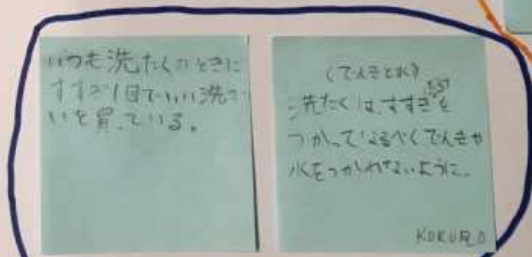 いつも洗たくのときに
すすぎ1回でいい洗ざ
いを買っている。
(でんきとれ)
洗たくは、すすぎを
つかってなるべくでんきや
水をつかわないように。